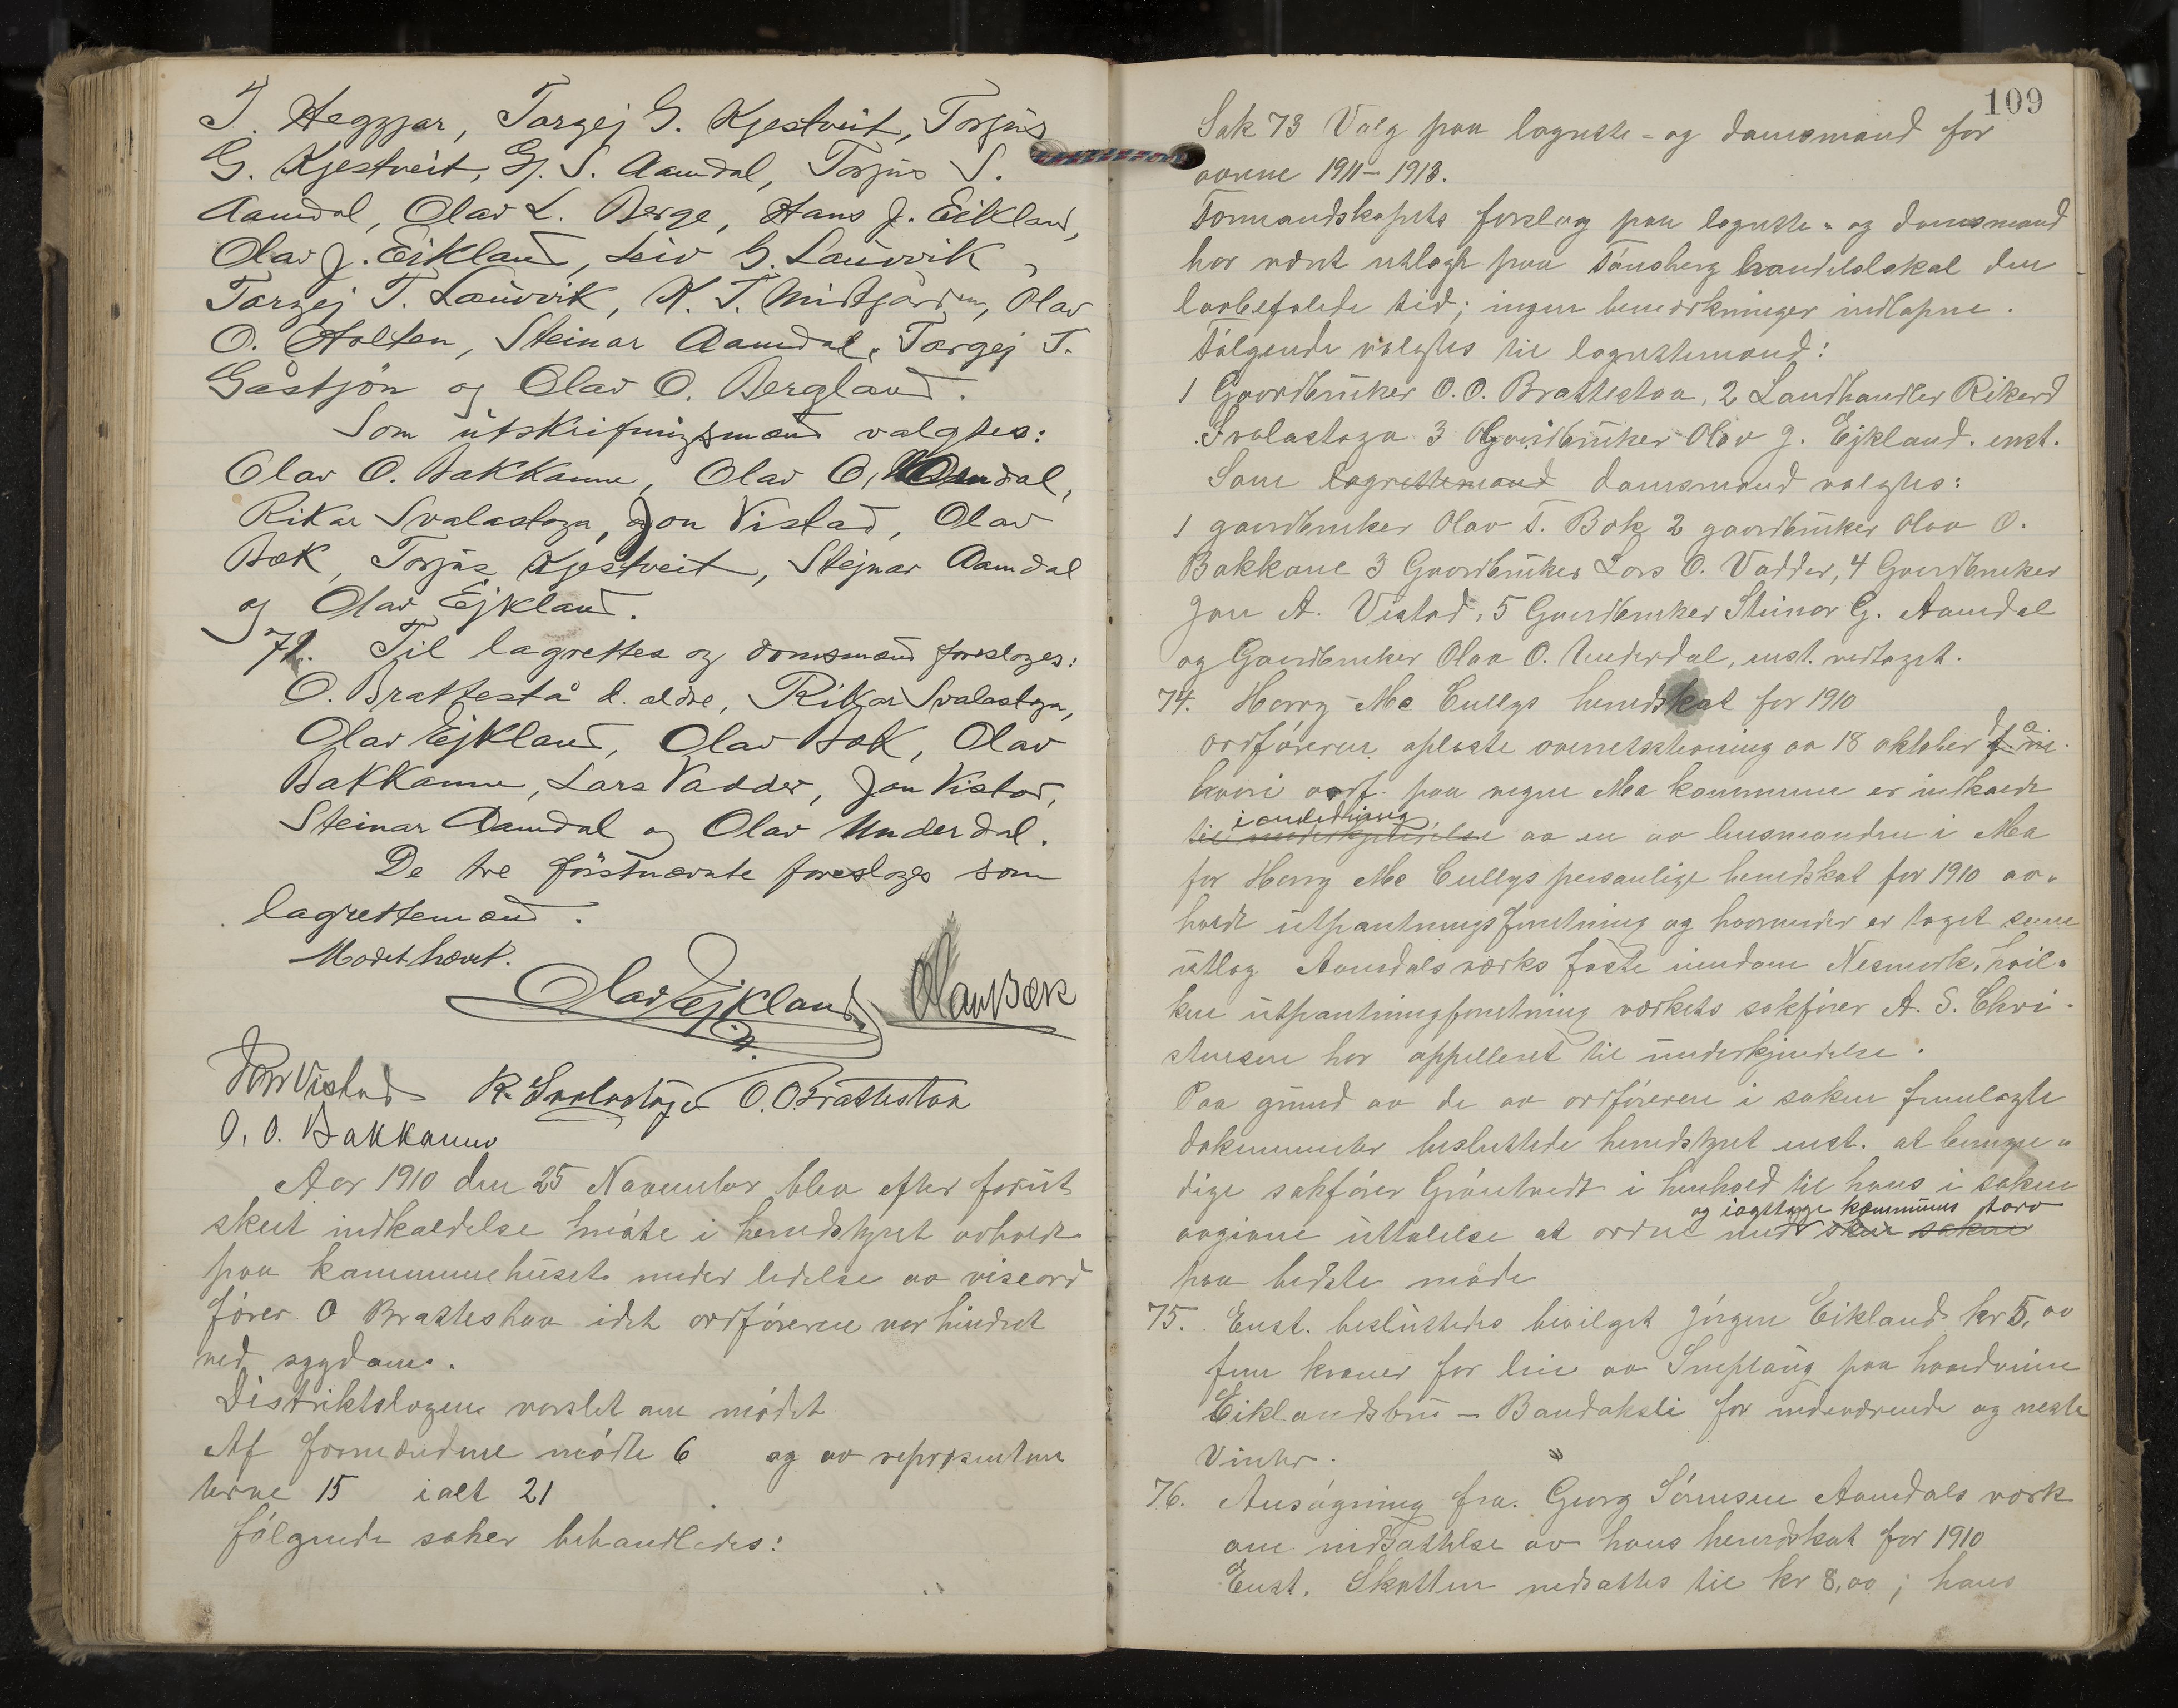 T. Heggjar, Targej G. Kjestveit, Torjus
G. Kjestveit, Gj. S. Aamdal, Torjus S.
Aamdal, Olav L. Berge, Hans J. Eikland,
Olav J. Eikland, Leiv G. Lauvvik,
Targej T. Lauvvik, K. T. Midtgarden, Olav
O. Holten, Steinar Aamdal, Targej T.
Gåstjön og Olav O. Bergland.
Som utskrifningsmænd valgtes:
Olav O. Bakkanne, Olav O. dal,
Rikar Svalastoga, Jon Vistad, Olav
Bæk, Torjus Kjestveit, Stejnar Aamdal
og Olav Ejkland.
71. Til lagrettes og domsmænd foresloges:
O. Brattestå d. ældre, Rikar Svalastoga,
Olav Ejkland, Olav Bæk, Olav
Bakkanne, Lars Vadder, Jon Vistad,
Steinar Aamdal og Olav Underdal.
De tre förstnævnte foresloges som
lagrettemænd.
Mødet hævet.
Olav Ejkland Olav Bæk
Jon Vistad R. Svalastoga O. O. Brattestaa
O. O. Bakkanne
Aar 1910 den 25 November blev efter forut
skeet indkaldelse møte i herredstyret avholdt
paa kommunehuset under ledelse av viseord
fører O Brattestaa idet ordføreren var hindret
ved sygdom.
Distriktslægen varslet om mødet
Af formændene mødte 6 og av repræsentan
terne 15 ialt 21
følgende saker behandledes:
109
Sak 73 Valg paa lagrette- og domsmænd for
aarene 1911-1913.
Formandskapets forslag paa lagrette- og domsmænd
har vært utlagt paa Tønsberg handelslokal den
lovbefalede tid; ingen bemærkninger indløpne.
Følgende valgtes til lagrettemænd:
1 Gaardbruker O. O. Brattestaa, 2 Landhandler Rikard
Svalastoga 3 Gaardbruker Olav J. Ejkland. enst.
Som lagrettemænd domsmænd valgtes:
1 gaardbruker Olav T. Bæk 2 gaardbruker Olav O.
Bakkane 3 Gaardbruker Lars O. Vadder, 4 Gaardbruker
Jon A. Vistad, 5 Gaardbruker Steinar G. Aamdal
og Gaardbruker Olav O. Underdal, enst. vedtaget.
74. Harry Mc Cullys herredskat for 1910
Ordføreren oplæste overretsstevning av 18 oktober d. a.
hvori ordf. paa vegne Mo kommune er indkaldt
i anledning
til underkjendelse av en av lensmanden i Mo
for Harry Mc Cullys personlige herredskat for 1910 av-
holdt utpantningsforretning og hvorunder er taget som
utlæg Aamdals værks faste eiendom Nesmork, hvil-
ken utpantningsforretning værkets sakfører A. S. Chri-
stensen har appelleret til underkjendelse.
Paa grund av de av ordføreren i saken fremlagte
dokumenter besluttede herredstyret enst. at bemyn-
dige sakfører Grøntvedt i henhold til hans i saken
og iagttage kommunens tarv
avgivne uttalelse at ordne med saken
paa bedste måde
75. Enst. besluttedes bevilget Jørgen Eikland kr 5,00
fem kroner for leie av Sneplaug paa
Eiklandsbru - Bandaksli for nuværende og neste
Vinter.
76. Ansøgning fra Georg Sørensen Aamdals værk
om nedsættelse av hans herredskat for 1910
Enst. Skatten nedsattes til kr 8,00; hans